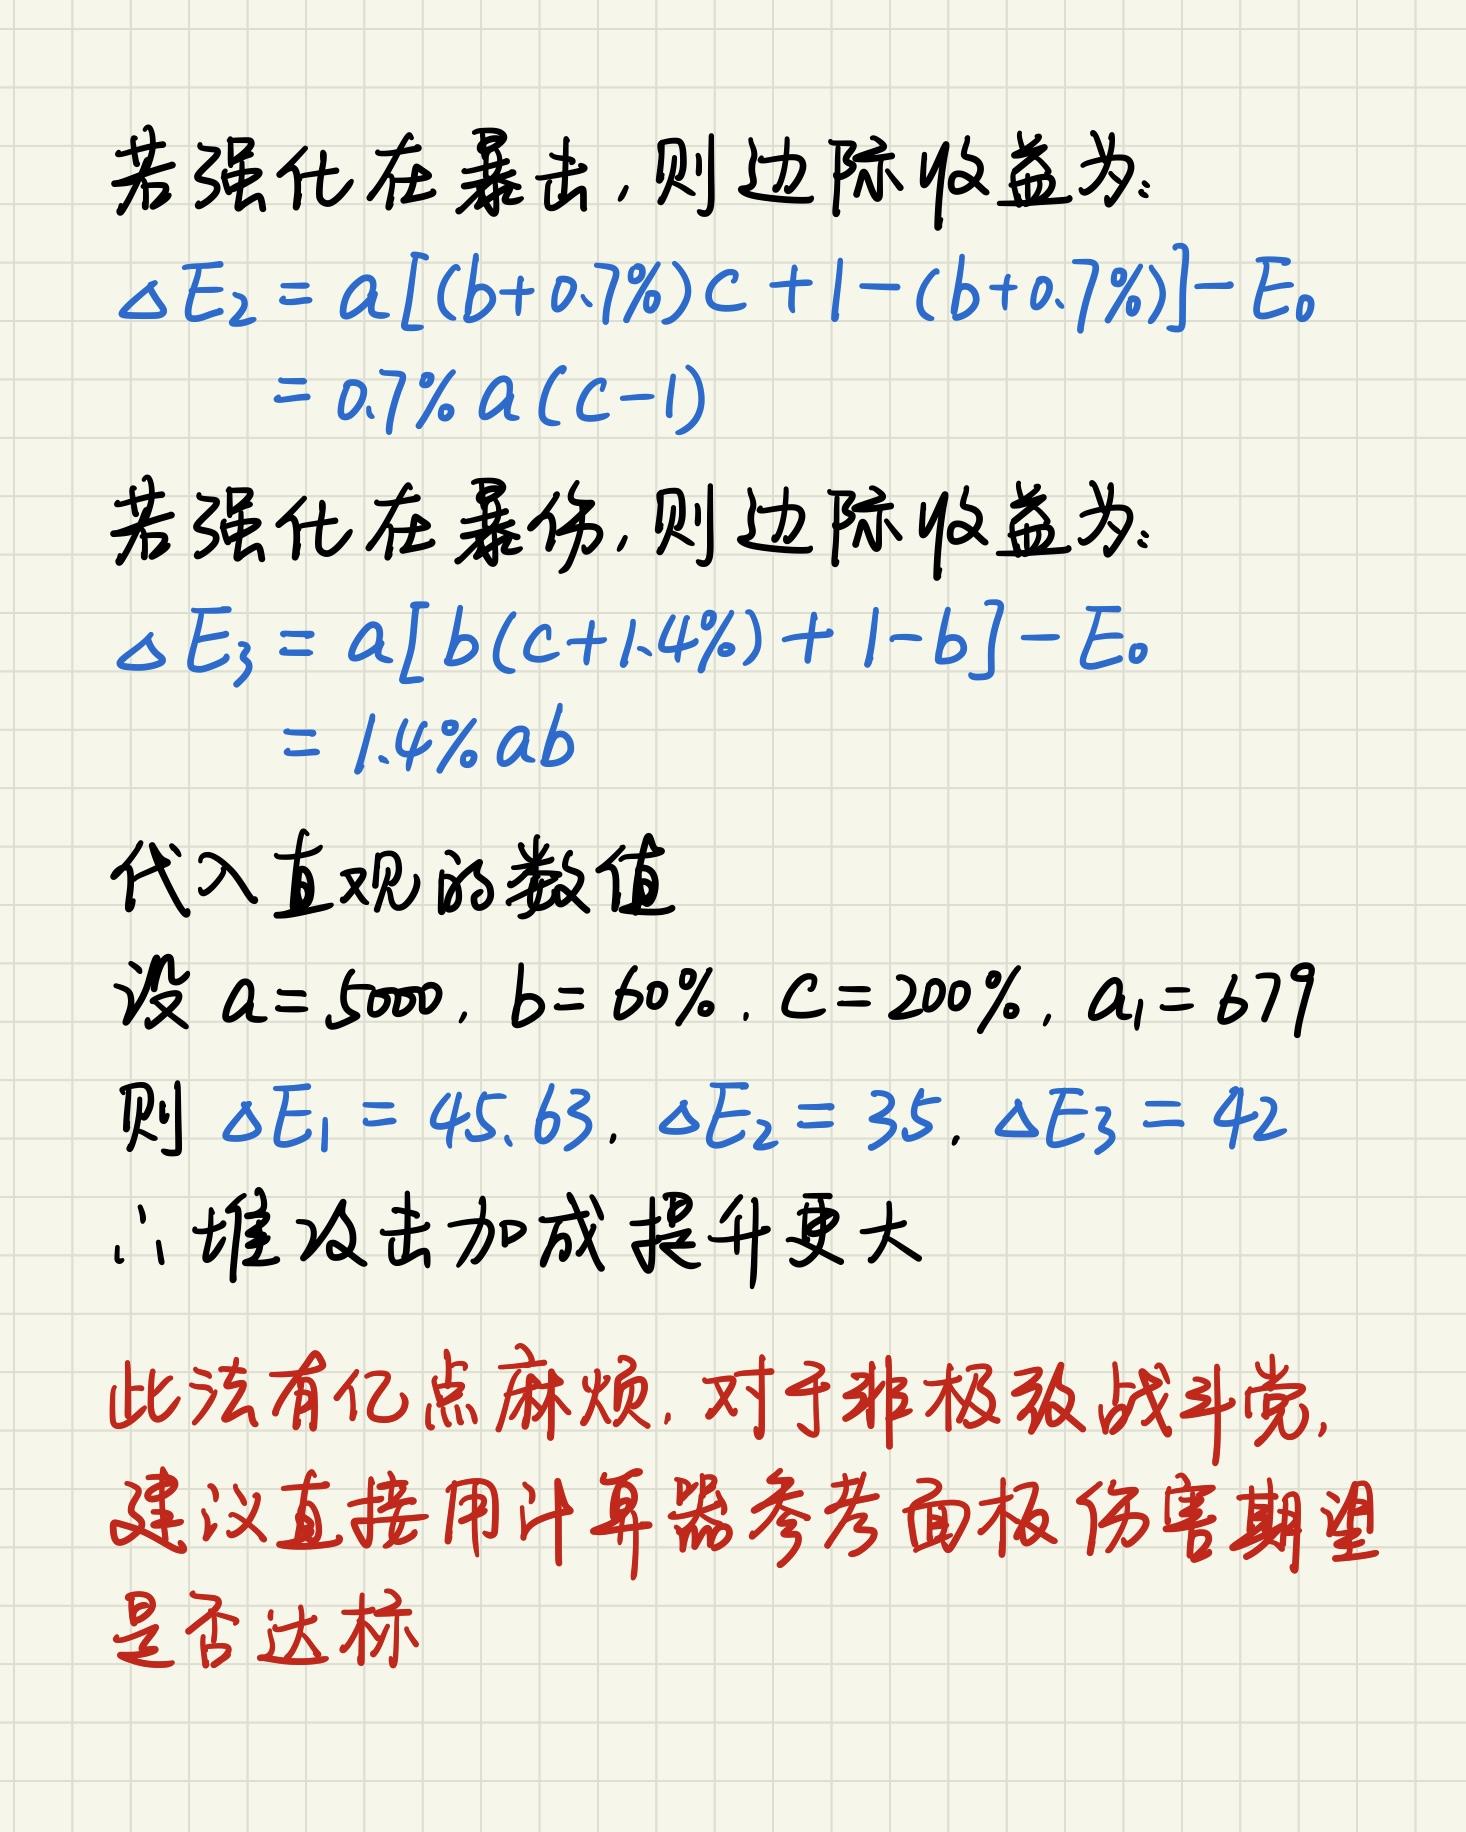 若强化在暴击,则边际收益为:
△E₂ = a[(b+0.7%)c+1-(b+0.7%)]-E₀
= 0.7%a(c-1)
若强化在暴伤,则边际收益为:
△E₃ = a[b(c+1.4%)+1-b]-E₀
= 1.4%ab
代入直观的数值
设 a=5000, b=60%, c=200%, a₁=679
则 △E₁=45.63, △E₂=35, △E₃=42
∴堆攻击加成提升更大
此法有亿点麻烦,对于非极致战斗党,
建议直接用计算器参考面板伤害期望
是否达标